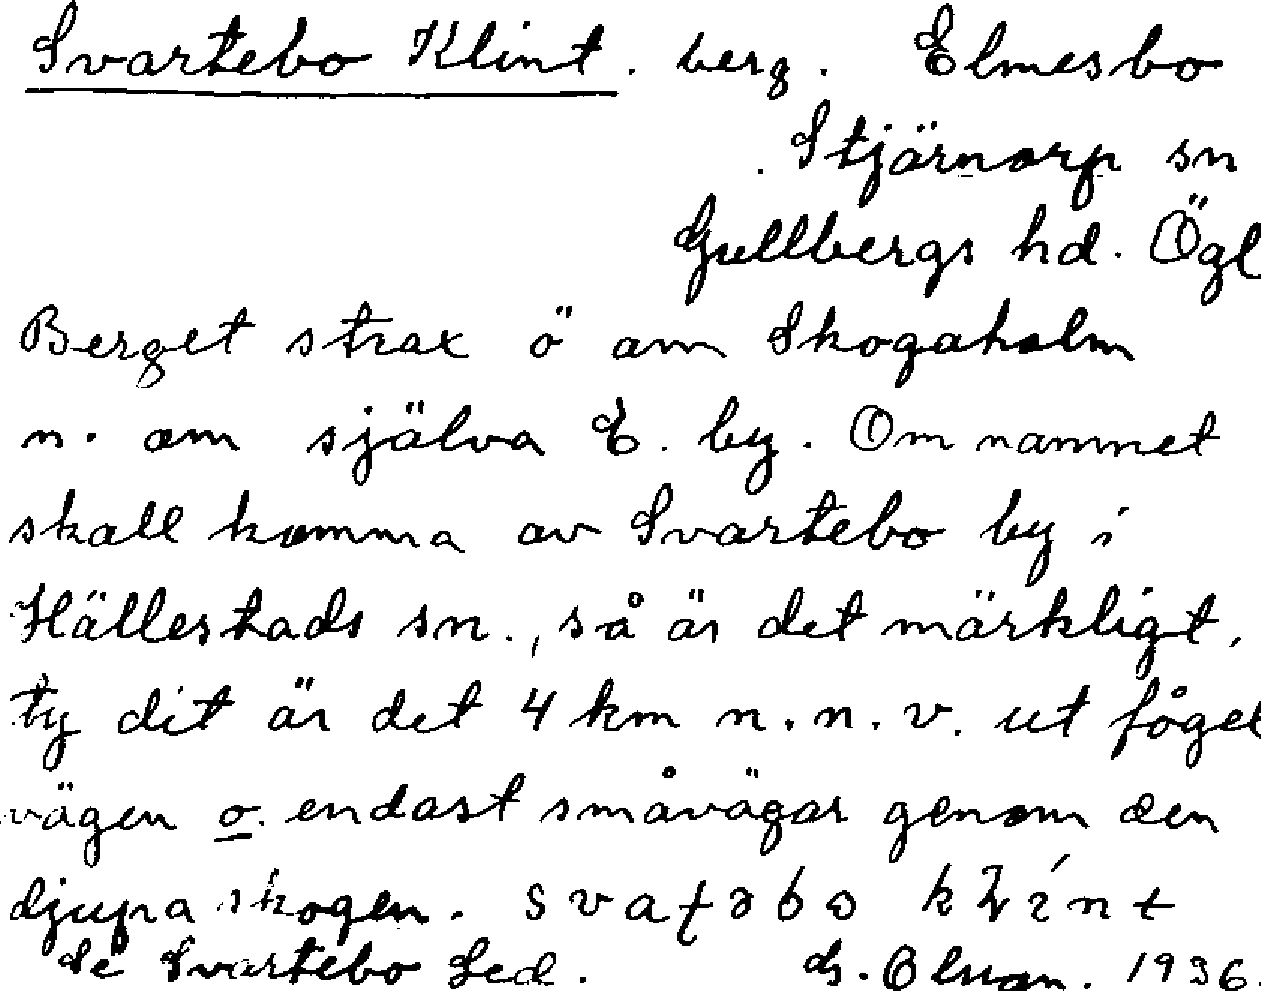 Svartebo Klint. berg. Elmesbo
Stjärnorp sn
Gullbergs hd. Ögl
Berget strax ö om Skogaholm
n. om själva E. by. Om namnet
skall komma av Svartebo by i
Hällestads sn., så är det märkligt,
ty dit är det 4 km n.n.v. ut fågel
vägen o. endast småvägar genom den
djupa skogen.
Se Svartebo Led. G. Olson. 1936.